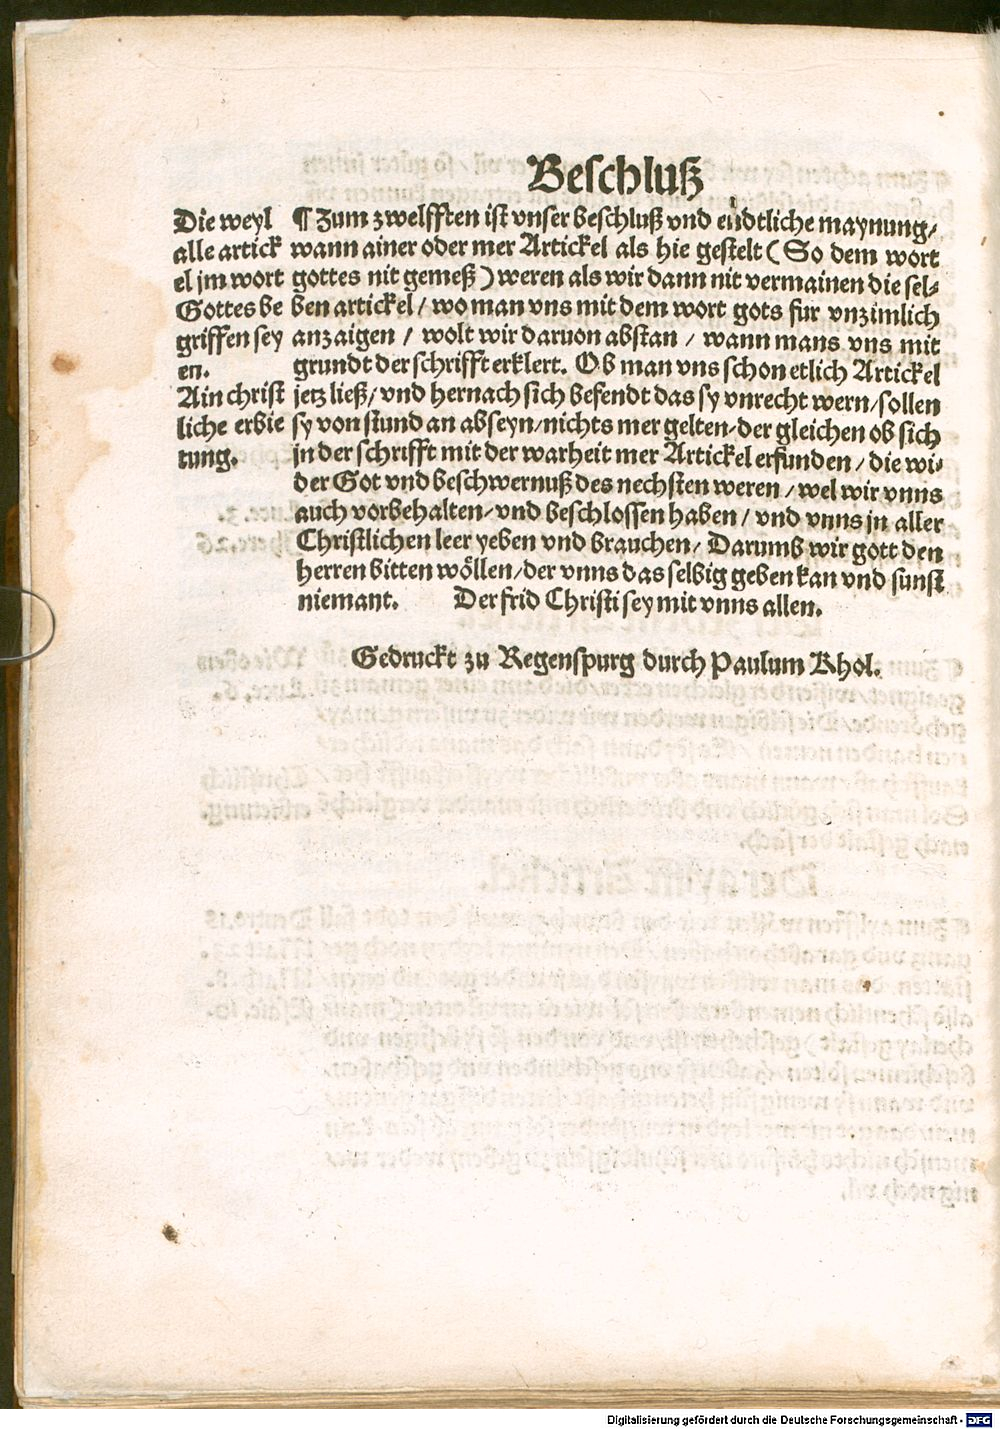 Beschluß
Die weyl
alle artick
el jm wort
Gottes be
griffen sey
en.
Ain christ
liche erbie
tung.
¶ Zum zwelfften ist vnser beschluß vnd endtliche maynung/
wann ainer oder mer Artickel als hie gestelt (So dem wort
gottes nit gemeß) weren als wir dann nit vermainen die sel⸗
ben artickel/ wo man vns mit dem wort gots fur vnzimlich
anzaigen / wolt wir daruon abstan / wann mans vns mit
grundt der schrifft erklert. Ob man vns schon etlich Artickel
jetz ließ/ vnd hernach sich befendt das sy vnrecht wern/ sollen
sy von stund an abseyn/ nichts mer gelten/ der gleichen ob sich
jn der schrifft mit der warheit mer Artickel erfunden/ die wi⸗
der Got vnd beschwernuß des nechsten weren / wel wir vnns
auch vorbehalten/ vnd beschlossen haben/ vnd vnns jn aller
Christlichen leer yeben vnd brauchen/ Darumb wir gott den
herren bitten wöllen/ der vnns das selbig geben kan vnd sunst
niemant. Der frid Christi sey mit vnns allen.
Gedruckt zu Regenspurg durch Paulum Khol.
Digitalisierung gefördert durch die Deutsche Forschungsgemeinschaft - DFG